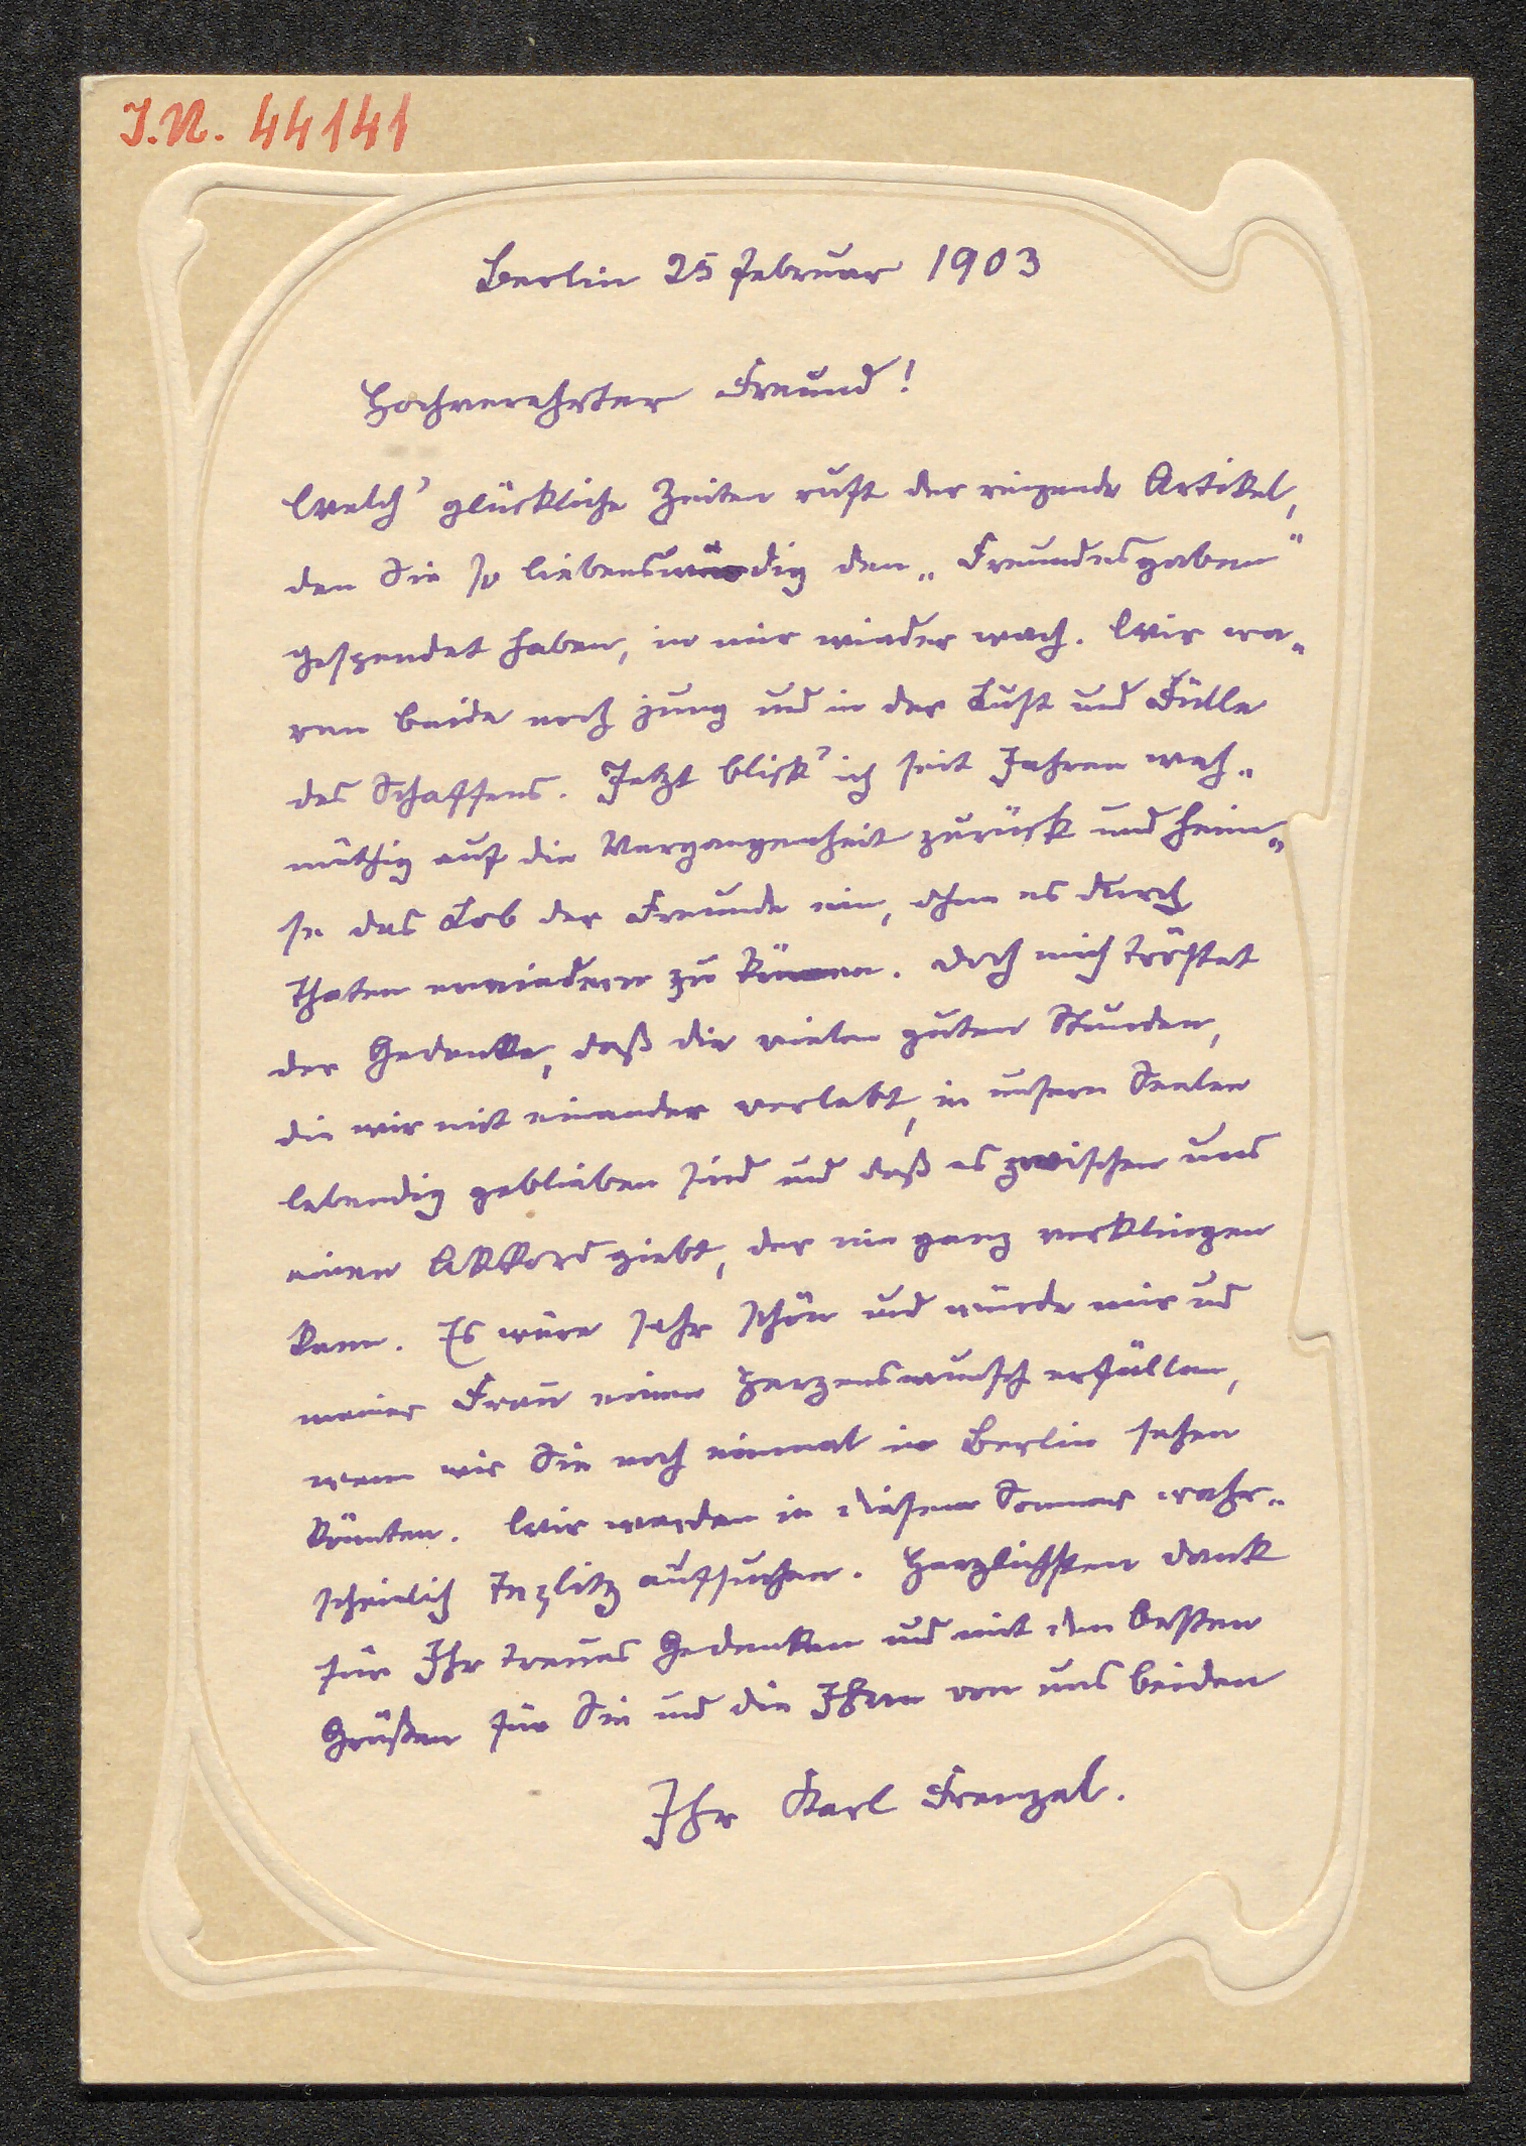 J.N. 44141
Berlin 25 Februar 1903
Hochverehrter Freund!
Welch' glückliche Zeiten ruft der reizende Artikel,
den Sie so liebenswürdig den „Freundesgaben"
gespendet haben, in mir wieder wach. Wir wa-
ren beide noch jung und in der Lust und Fülle
des Schaffens. Jetzt blick' ich seit Jahren weh-
müthig auf die Vergangenheit zurück und heim-
se das Lob der Freunde ein, ohne es durch
Thaten erwiedern zu können. Doch mich tröstet
der Gedanke, daß die vielen guten Stunden,
die wir mit einander verlebt, in unsern Seelen
lebendig geblieben sind und daß es zwischen uns
einen Akkord giebt, der nie ganz verklingen
kann. Es wäre sehr schön und würde mir und
meiner Frau einen Herzenswunsch erfüllen,
wenn wir Sie noch einmal in Berlin sehen
könnten. Wir werden in diesem Sommer wahr-
scheinlich Teplitz aufsuchen. Herzlichsten Dank
für Ihr treues Gedenken und mit den besten
Grüßen für Sie und die Ihren von uns beiden
Ihr Karl Frenzel.